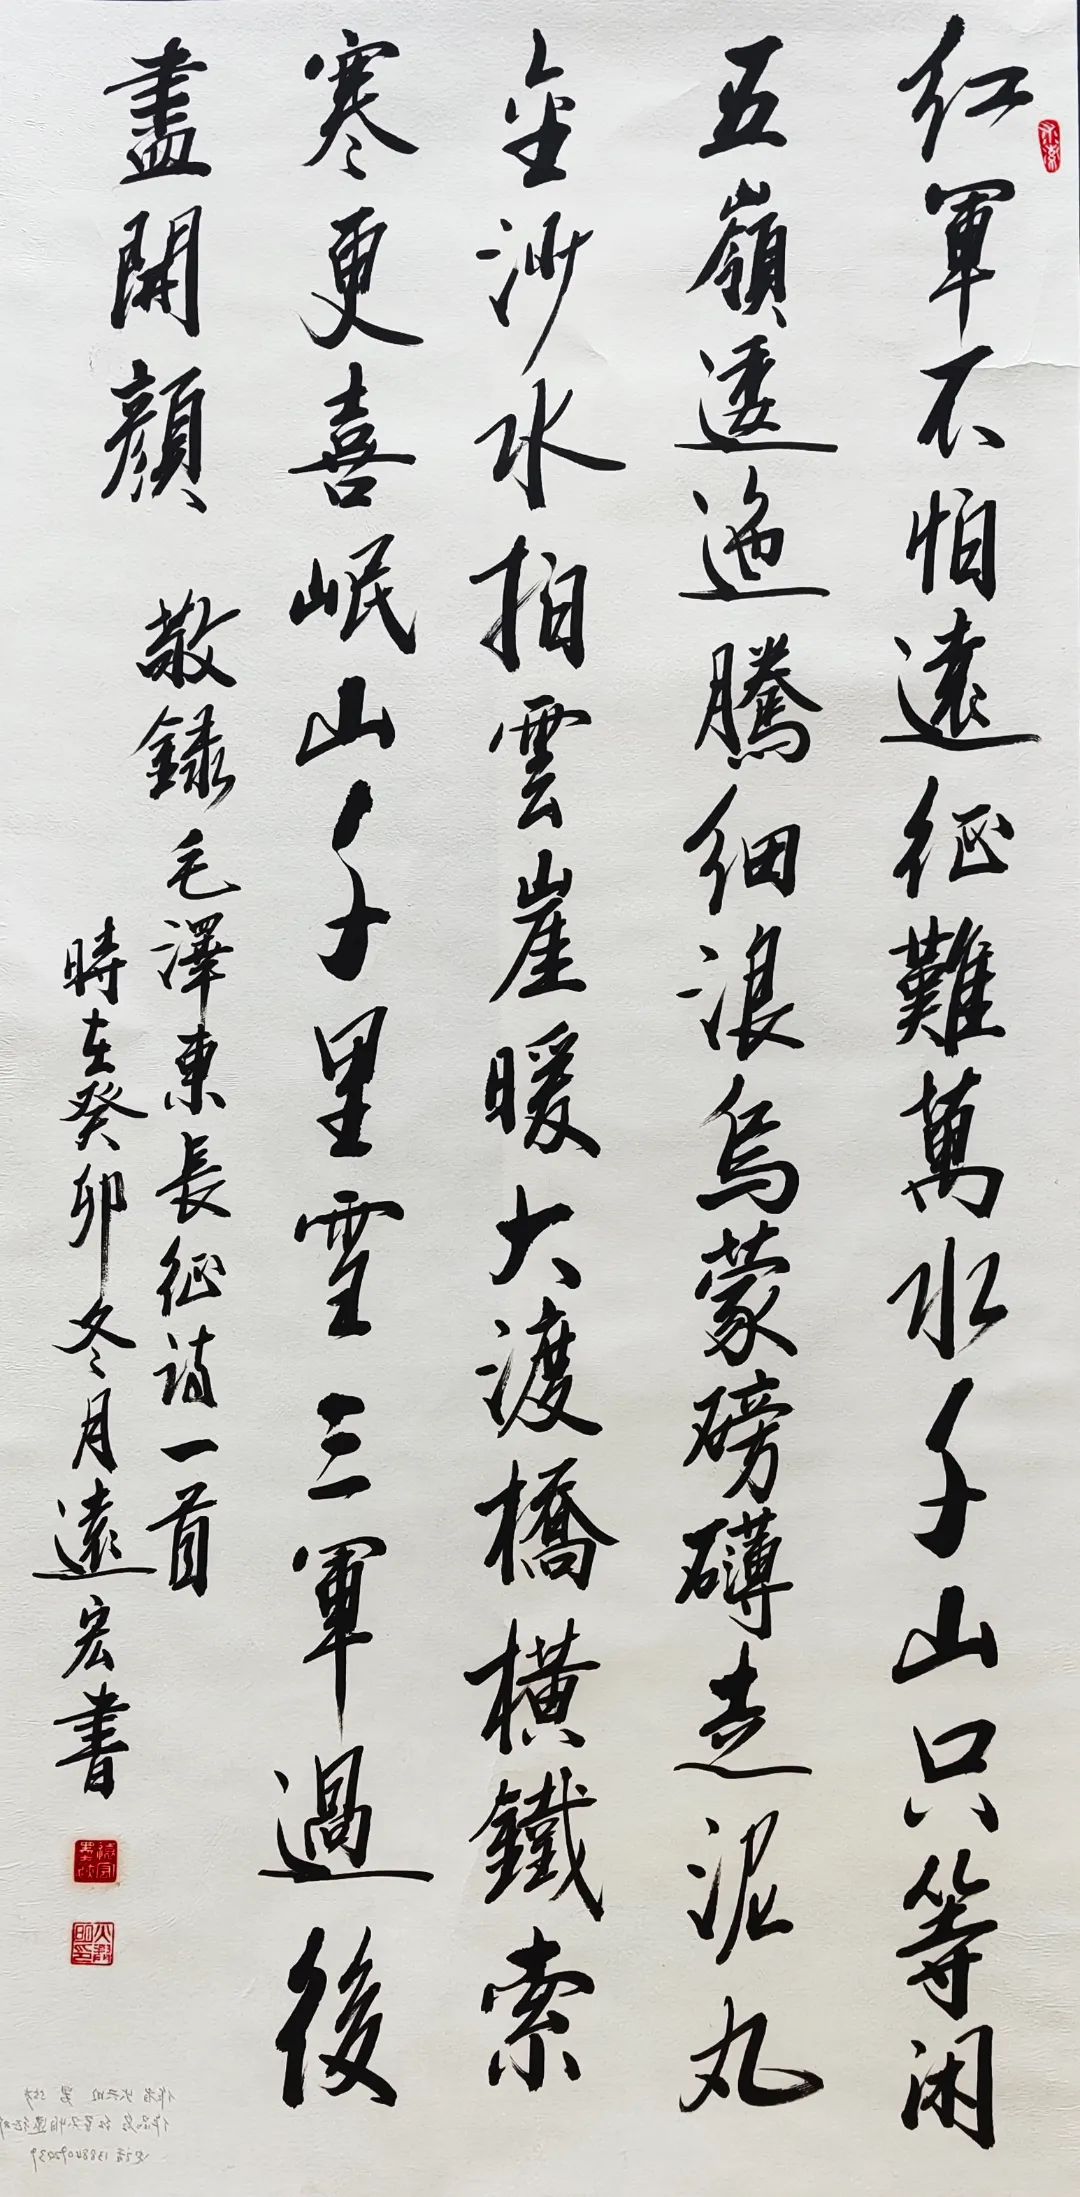 红軍不怕遠征難萬水千山只等闲
五嶺逶迤騰细浪烏蒙磅礴走泥丸
金沙水拍雲崖暖大渡橋橫鐵索
寒更喜岷山千里雪三軍過後
盡開顏
敬録毛澤東長征詩一首
時在癸卯冬月遠宏書